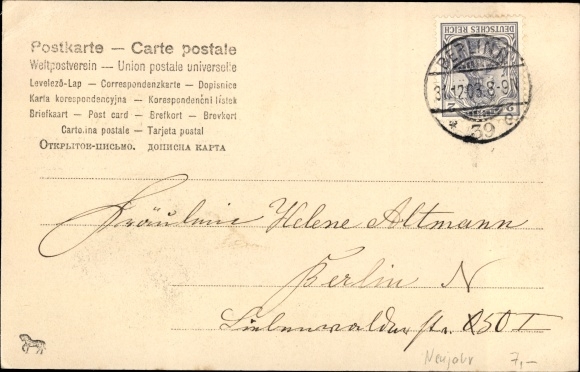 Postkarte — Carte postale
Weltpostverein — Union postale universelle
Levelező-Lap — Correspondenzkarte — Dopisnice
Karta korespondencyjna — Korespondenční lístek
Briefkaart — Post card — Brefkort — Brevkort
Cartolina postale — Tarjeta postal
Открытое-письмо. дописна карта
DEUTSCHES REICH
BERLIN N
31.12.03. 8-9N
* 39 e
Fräulein Helene Altmann
Berlin N
Liebenwalderstr. 50 I
Neujahr 7,-